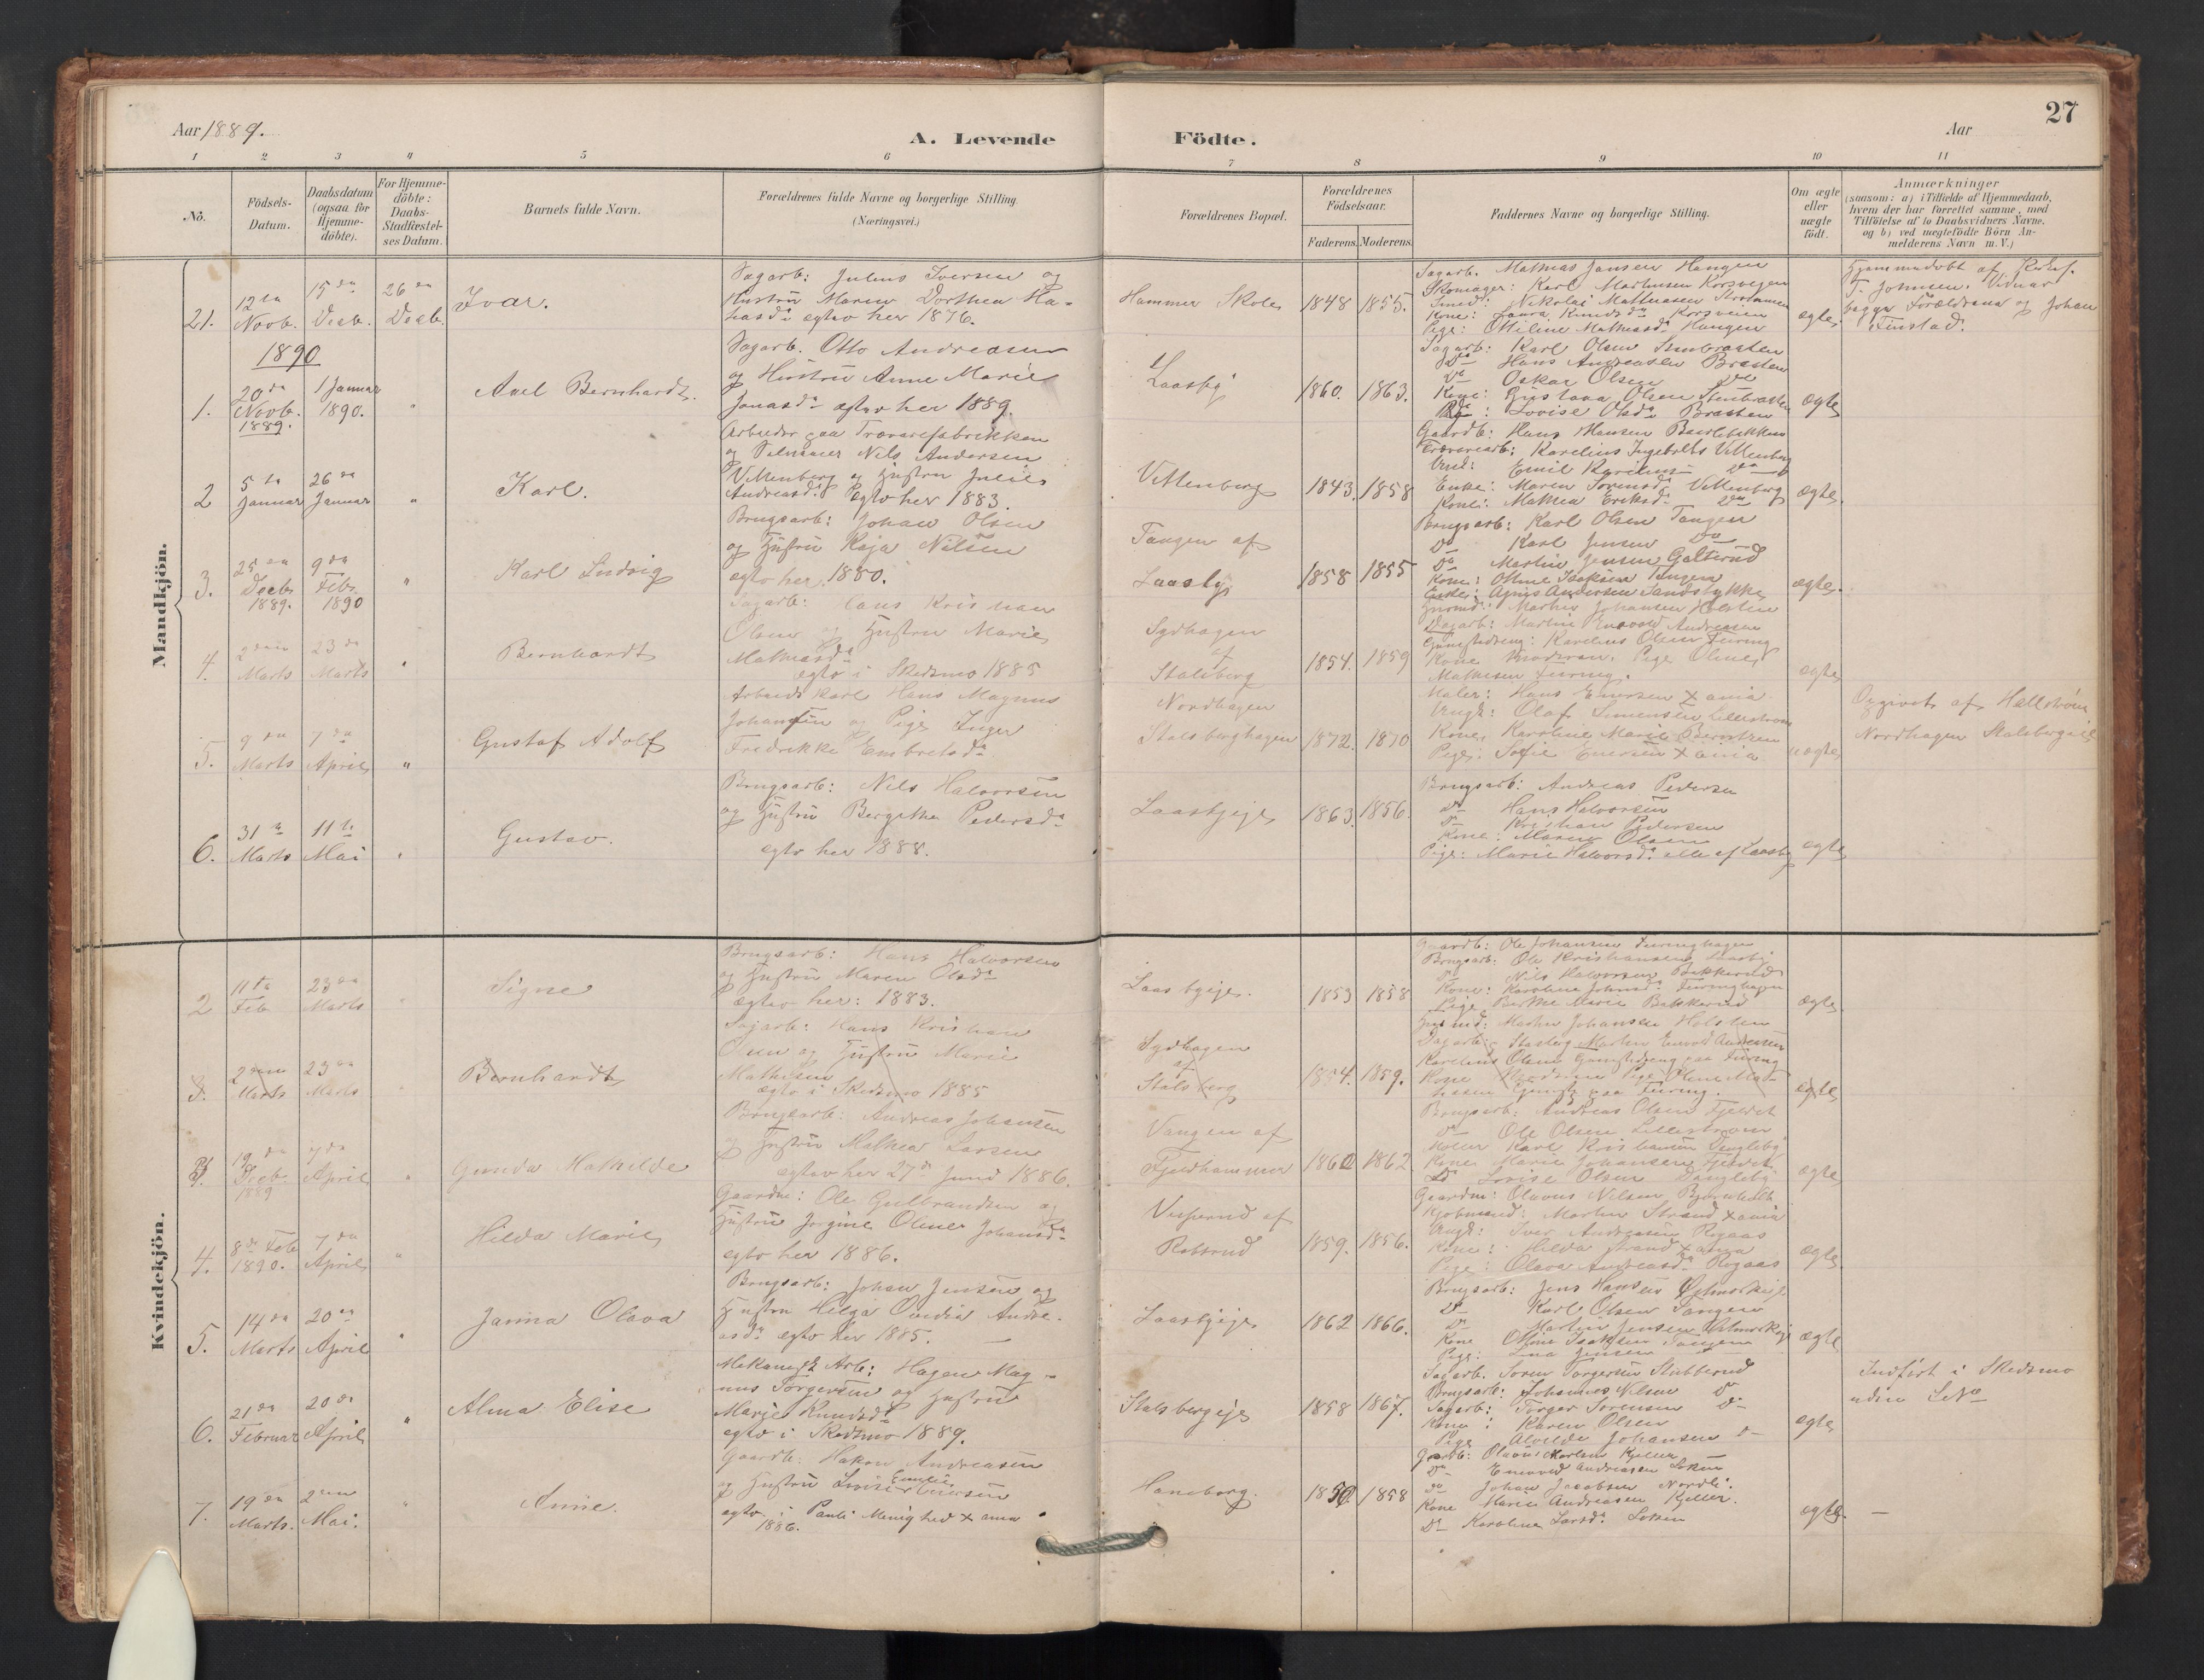 Aar 1889.
A. Levende
Födte.
Aar
27
1
2
3
4
5
6
7
8
9
10
11
No.
Födsels-
Datum.
Daabsdatum
(ogsaa for
Hjemme-
döbte).
For Hjemme-
döbte:
Daabs-
Stadfæstel-
ses Datum.
Barnets fulde Navn.
Forældrenes fulde Navne og borgerlige Stilling.
(Næringsvei.)
Forældrenes Bopæl.
Forældrenes
Födselsaar.
Faderens.
Moderens.
Faddernes Navne og borgerlige Stilling.
Om ægte
eller
uægte
födt.
Anmærkninger
(saasom: a) i Tilfælde af Hjemmedaab,
hvem der har forrettet samme, med
Tilföielse af to Daabsvidners Navne,
og b) ved uægtefödte Börn An-
melderens Navn m. V.)
Mandkjön.
21.
12te
Novb.
15de
Decb.
26de
Decb.
Ivar.
Sagarb: Julius Iversen og
Hustru Maren Dorthea Ma-
thiasda egtev her 1876.
Hammer Skole
1848
1855.
Sagarb. Mathias Jansen Haugen
Skomager: Karl Martinsen Korsveien
Smed: Nikolai Mathiasen
Kone: Laura Knudsda Korsveien
Pige: Ottiline Mathiasda Haugen
ægte
Hjemmedöbt af
T. Johnsen. Vidner
begge Forældrene og Johan
Finstad.
1890
1.
20de
Novb.
1889.
1 Januar
1890.
"
Axel Bernhardt.
Sagarb. Otto Andreasen
og Hustru Anne Marie
Jonasda egtev her 1889.
Laasby
1860.
1863.
Sagarb: Karl Olsen Stenbraaten
Do Hans Andreasen Braaten
Do Oskar Olsen Do
Kone: Gustava Olsen Stenbraaten
Pige: Lovise Olsda Braaten
ægte
2
5te
Januar
26de
Januar
"
Karl.
Arbeider paa Trævarefabrikken
og Selveier Nils Andersen
Vittenberg og Hustru Julie
Andreasda egtv her 1883.
Vittenberg
1843.
1858
Gaardb: Hans Hansen
Trævarearb: Karelius Ingebrets Vittenberg
Ungk: Emil Do
Enke: Maren Sorensda Vittenberg
Kone: Mathea Eriksda Do
ægte.
3.
25de
Decb.
1889.
9de
Feb.
1890
"
Karl Ludvig
Brugsarb: Johan Olsen
og Hustru Kaja Nilsen
egtv her 1880.
Tangen af
Laasby
1858
1855
Brugsarb: Karl Olsen Tangen
Do Karl Jensen Do
Do Martin Jensen Galterud
Kone: Oline Isaksen Tangen
Enke: Agnes Andersen Sandstykke
ægte.
4.
2den
Marts
23de
Marts
"
Bernhardt
Sagarb: Hans Kristian
Olsen og Hustru Marie
Mathiasda
egtv i Skedsmo 1885
Sydhagen
af
Stalsberg
1854.
1859
Husmd: Martin Johansen Holsten
Dagarb: Martin Enevold Andreasen
Karelius Olsen Furing
Kone Pige Oline
Mathisen Furing.
ægte
5.
9de
Marts
7de
April
"
Gustaf Adolf
Arbeids Karl Hans Magnus
Johansen og Pige Inger
Fredrikke Embretsda
Nordhagen
Stalsberghagen
1872.
1870
Maler: Hans Enersen X ania
Ungk: Olaf Simensen Lillestrøm
Kone Karoline Marie Berntzen
Pige: Sofie Enersen X ania
uægte
Opgivet af Hallstrøm
Nordhagen Stalsbergeie
6.
31te
Marts
11te
Mai
"
Gustav.
Brugsarb: Nils Halvorsen
og Hustru Bergithe Pedersda
egtv her 1888.
Laasbyeje
1863.
1856.
Brugsarb: Andreas Pedersen
Do Hans Halvorsen
Do Kristian Pedersen
Kone: Maren Olsen
Pige: Marie Halvorsda alle af Laasby
ægte
Kvindekjön.
2
11te
Feb
23de
Marts
"
Signe
Brugsarb: Hans Halvorsen
og Hustru Maren Olsda
egtev her: 1883.
Laasbyeje.
1853
1858
Gaardb: Ole Johansen Furinghagen
Brugsarb: Ole Kristiansen Laasby
Do Nils Halvorsen Bakkerud
Kone: Karoline Johnsda Furinghagen
Pige Berthe Marie Bakkerud
ægte
3.
2den
Marts
23de
Marts
"
Bernhardt
Sagarb: Hans Kristian
Olsen og Hustru Marie
Mathisen
egtv i Skedsmo 1885
Sydhagen
af
Stalsberg
1854.
1859.
Husmd: Martin Johansen Holsten
Dagarb: Stalsberg Martin Enevold Andreasen
Karelius Olsen paa Furing
Kone Pige Oline Mat-
hisen paa Furing.
ægte
3.
19de
Decb
1889
7de
April
"
Gunda Mathilde
Brugsarb: Andreas Johansen
og Hustru Mathea Larsen
egtev her 27de Juni 1886.
Vangen af
Fjeldhammer
1860
1862
Brugsarb: Andreas Olsen Fjeldet
Do Ole Olsen Lillestrøm
Karl Kristiansen Døngleby
Kone Marie Johansen Fjeldet
Do Lovise Olsen Døngleby
ægte
4.
8de Feb
1890.
7de
April
"
Hilda Marie
Gaardm: Ole Gulbrandsen og
Hustru Jørgine Oline Johansda
egtv her 1886.
af
Robsrud
1859.
1856.
Gaardm: Olavus Nilsen Bjørnholt
Kjøbmand: Martin Strand X ania
Ungk: Iver Andreasen Rogaas
Kone: Hilda Strand X ania
Pige: Olava Andreasda Rogaas
ægte
5.
14de
Marts
20de
April
"
Janna Olava
Brugsarb: Johan Jensen og
Hustru Helga Andre-
asda egtv her 1885.
Laasbyeje
1862
1866.
Brugsarb: Jens Hansen
Do Karl Olsen Tangen
Do Martin Jensen
Kone Oline Isaksen Tangen
Pige: Lina Jensen Do
ægte
6.
21de
Februar
20de
April
"
Alma Elise
Mekanisk Arb: Hagen Mag-
nus Torgersen og Hustru
Marie Knudsda
egtv i Skedsmo 1889.
Stalsbergeje
1858
1867.
Sagarb. Soren Torgersen Stubberud
Brugsarb: Johannes Nilsen Do
Sagarb: Torger Sorensen Do
Kone: Karen Olsen
Pige Alvilde Johansen Do
ægte
Indført i Skedsmo
uden No
7.
19de
Marts.
2den
Mai.
"
Anne.
Gaardb. Hakon Andreasen
og Hustru Lovise Emilie Iversen
egtv. i Pauli Menighed X ania
1886.
Haneborg.
1850
1858
Gaardb: Olavus Karlsen Kjeller
Do Enevold Andreasen Loken
Do Johan Jacobsen Nordli.
Kone Marie Andreasen Kjeller.
Do Karoline Larsda Loken
ægte.
—